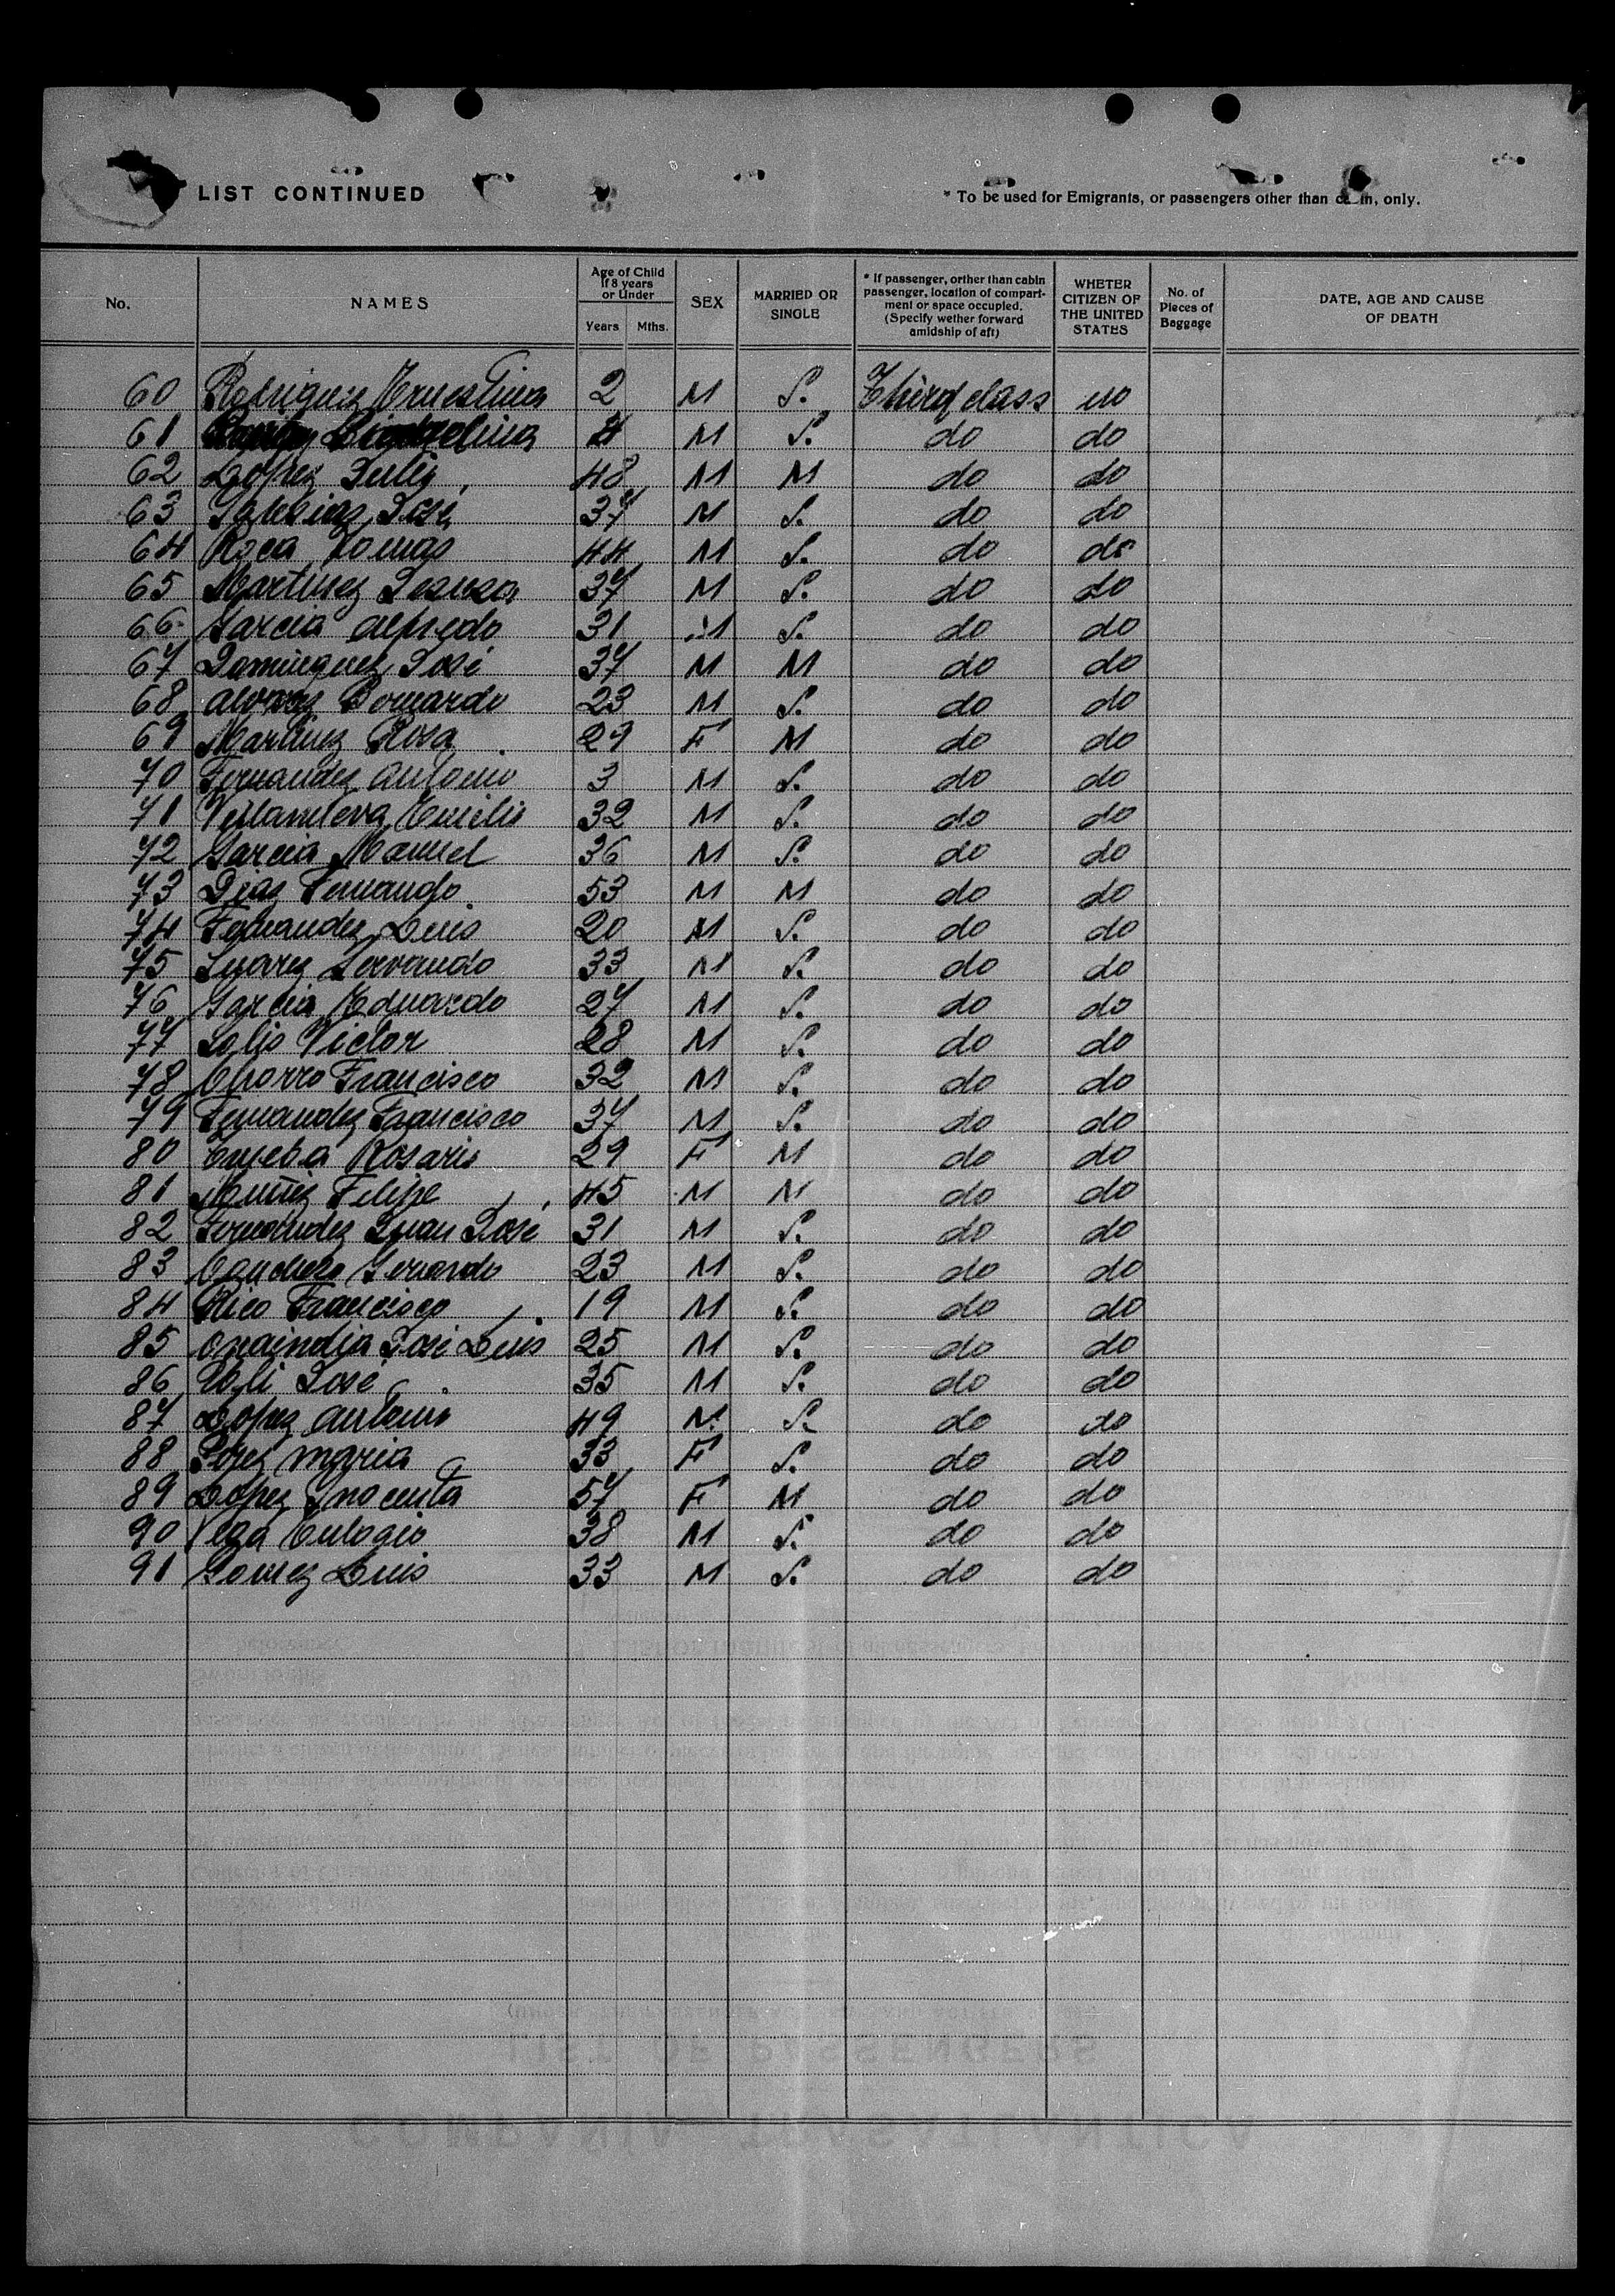 LIST CONTINUED
* To be used for Emigrants, or passengers other than in, only.
No. NAMES Age of Child If 8 years or Under Years Mths. SEX MARRIED OR SINGLE * If passenger, orther than cabin passenger, location of compartiment or space occupied. (Specify wether forward amidship of aft) WHETER CITIZEN OF THE UNITED STATES No. of Pieces of Baggage DATE, AGE AND CAUSE OF DEATH
60 Rodriguez Ernestina 2 M S. Third class no
61 4 M S. do do
62 Lopez Julio 48 M M do do
63 Iglesias José 37 M S. do do
64 Roca Tomas 44 M S. do do
65 Martinez 37 M S. do do
66 Garcia Alfredo 31 M S. do do
67 Dominguez José 37 M M do do
68 Alvarez Bernardo 23 M S. do do
69 Martinez Rosa 29 F M do do
70 Fernandez Antonio 3 M S. do do
71 Villanueva Emilio 32 M S. do do
72 Garcia Manuel 36 M S. do do
73 Diaz Fernando 53 M M do do
74 Fernandez Luis 20 M S. do do
75 Suarez Servando 33 M S. do do
76 Garcia Eduardo 27 M S. do do
77 Solis Victor 28 M S. do do
78 Francisco 32 M S. do do
79 Fernandez Francisco 37 M S. do do
80 Rosario 29 F M do do
81 Muñiz Felipe 45 M M do do
82 Fernandez Juan José 31 M S. do do
83 Gerardo 23 M S. do do
84 Rico Francisco 19 M S. do do
85 José Luis 25 M S. do do
86 José 35 M S. do do
87 Lopez Antonio 49 M S. do do
88 Perez Maria 33 F S. do do
89 Lopez Inocenta 57 F M do do
90 Vega Eulogio 38 M S. do do
91 Gomez Luis 33 M S. do do